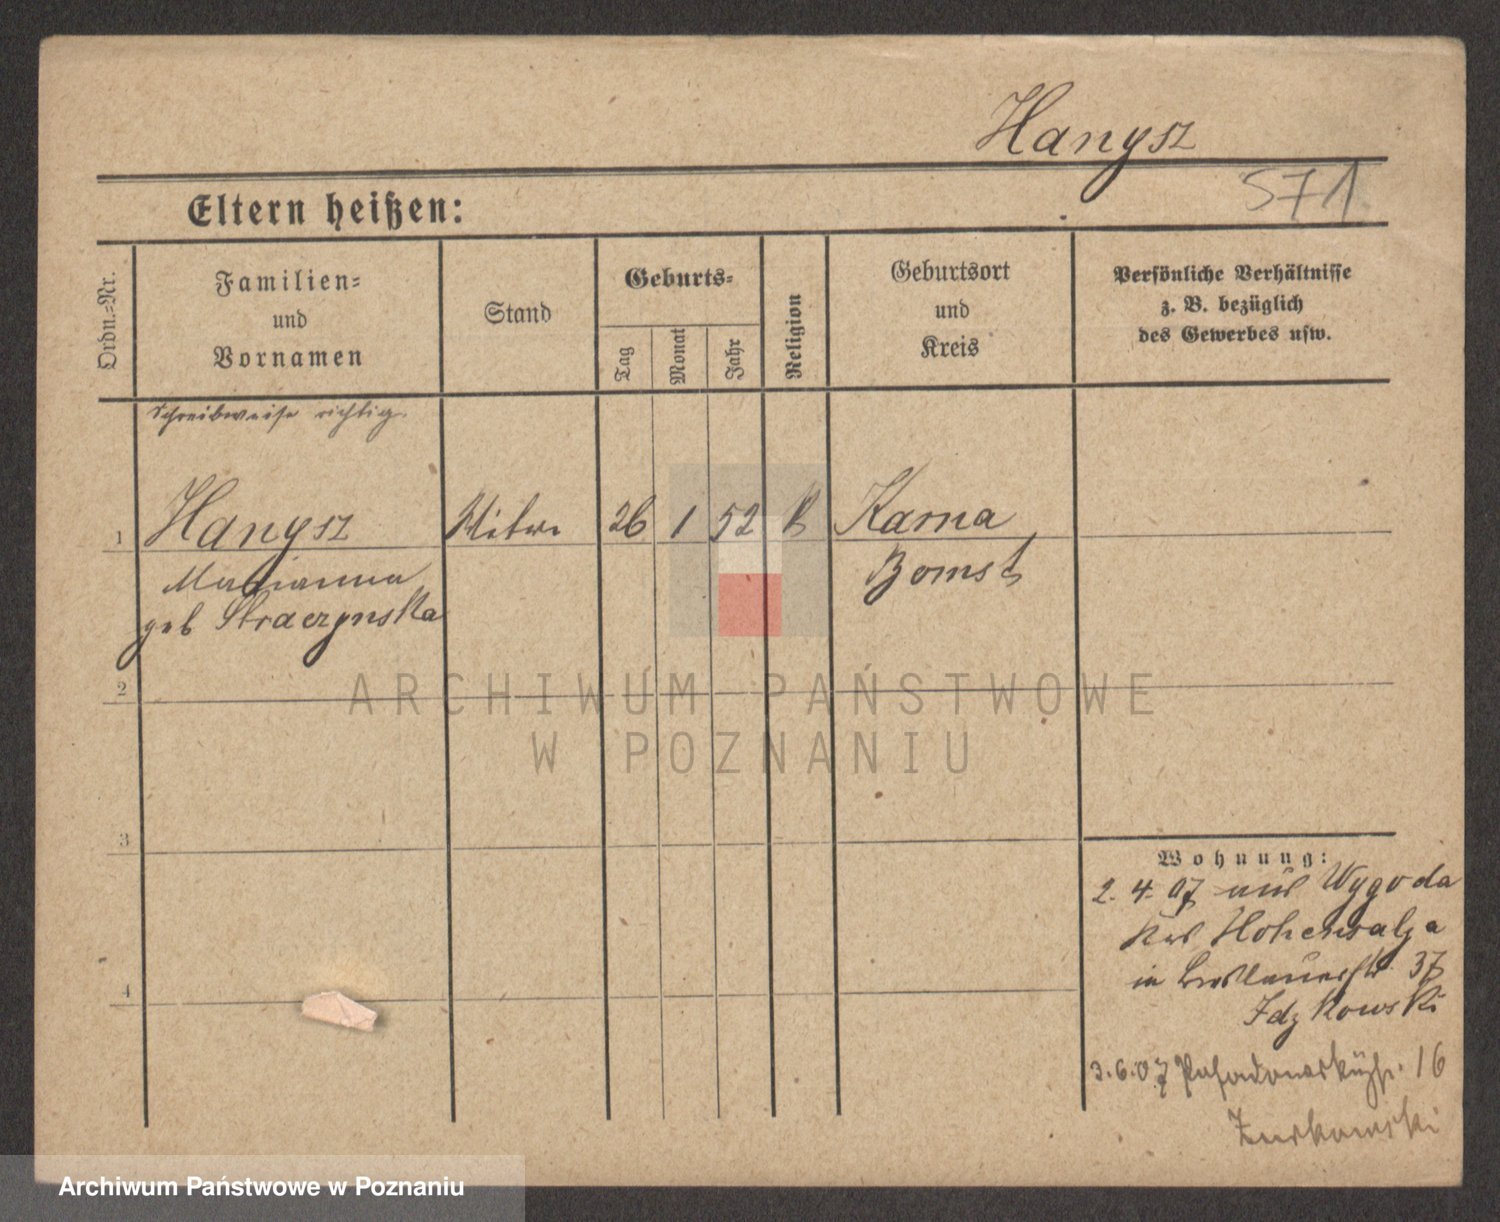 Hanysz
571
Eltern heißen:
Ordn.=Nr.
Familien=
und
Vornamen
Stand
Geburts=
Tag
Monat
Jahr
Religion
Geburtsort
und
Kreis
Persönliche Verhältnisse
z. B. bezüglich
des Gewerbes usw.
Schreibweise richtig.
1 Hanysz 26 1 52 k Karna
Marianna Bomst
geb Skraczynska
2
ARCHIWUM PAŃSTWOWE
W POZNANIU
3
4
Wohnung:
2. 4. 07 aus Wygoda
Krs Hohensalza
in Breslauerstr. 37
Idzkowski
3.6.07 16
Zurkowski
Archiwum Państwowe w Poznaniu